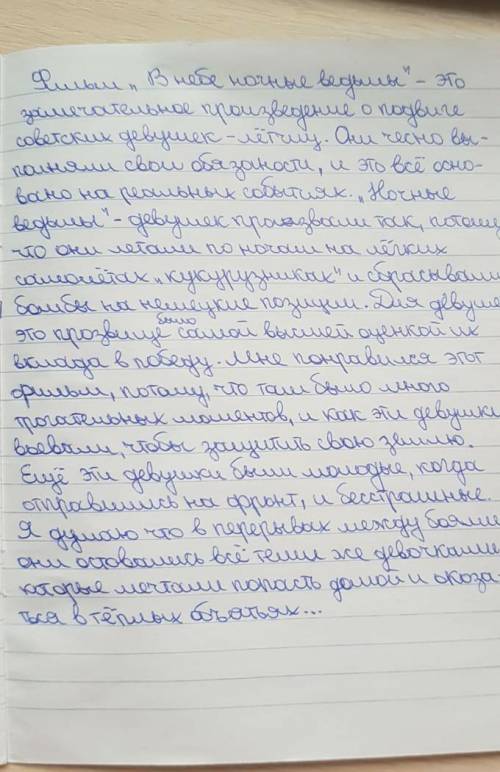 Фильм „В небе ночные ведьмы" - это
замечательное произведение о подвиге
советских девушек-лётчиц. Они чесно вы-
полняли свои обязаности, и это всё осно-
вано на реальных событиях. „Ночные
ведьмы" - девушек прозвали так, потому
что они летали по ночам на лёгких
самолётах „кукурузниках" и сбрасывали
бомбы на немецкие позиции. Для девуш
это прозвище было самой высшей оценкой их
вклада в победу. Мне понравился этот
фильм, потому, что там было много
трогательных моментов, и как эти девушки
воевали, чтобы защитить свою землю.
Ещё эти девушки были молодые, когда
отправились на фронт, и бесстрашные.
Я думаю что в перерывах между боями
они оставались всё теми же девочками
которые мечтали попасть домой и оказа-
ться в тёплых объятьях...